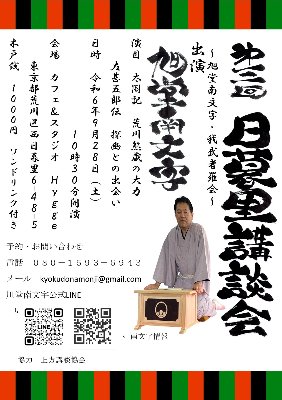 第二回 日暮里講談会
～旭堂南文字・我武者羅会～
出演
旭堂南文字
演目 太閤記 荒川熊蔵の大力
左甚五郎伝 探幽との出会い
日時 令和6年9月28日(土)
10時30分開演
会場 カフェ&スタジオ Hygge
東京都荒川区西日暮里6-48-5
木戸銭 1000円 ワンドリンク付き
予約・お問い合わせ
電話 080-1693-6943
メール kyokudonamonji@gmail.com
旭堂南文字公式LINE
南文字情報
協力 上方講談協会